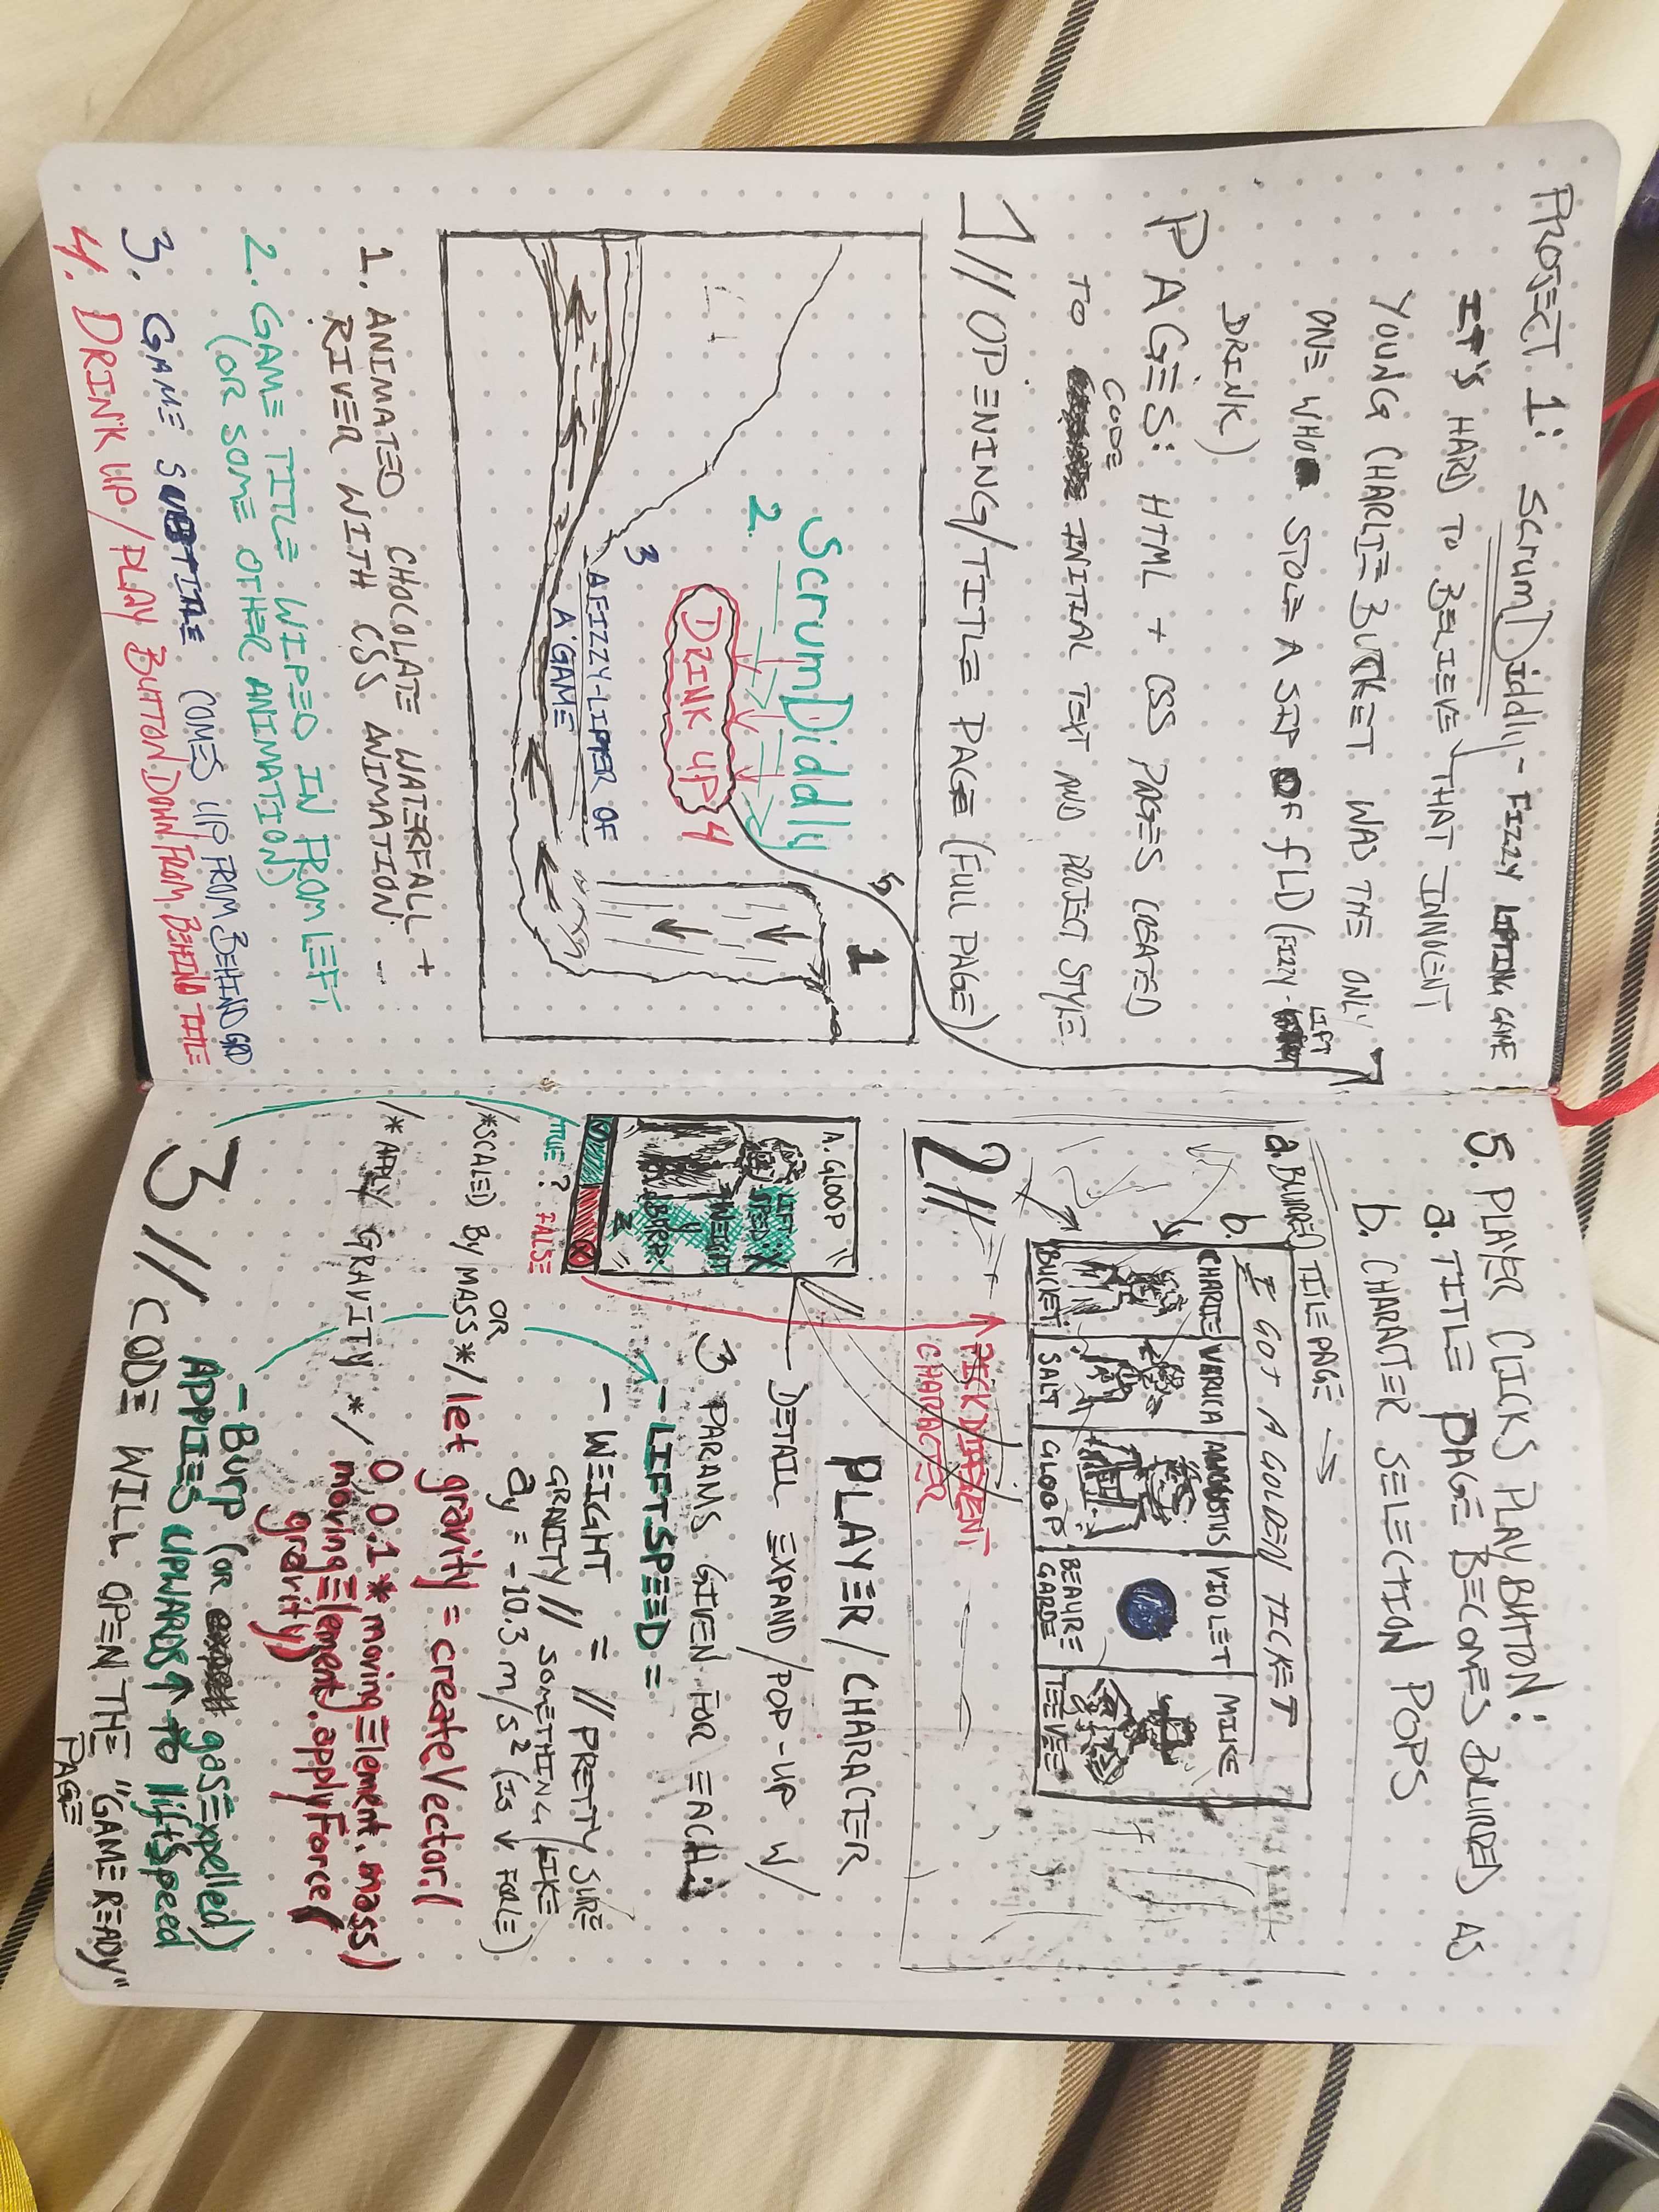 PROJECT 1: scrumDiddly - FIZZY LIFTING GAME
IT'S HARD TO BELIEVE THAT INNOCENT
YOUNG CHARLIE BUCKET WAS THE ONLY
ONE WHO STOLE A SIP OF fLD (FIZZY-LIFT
DRINK)
PAGES: HTML + CSS PAGES CREATED
TO CODE INITIAL TEXT AND PROJECT STYLE.
1// OPENING/TITLE PAGE (FULL PAGE)
5
1
scrumDiddly
2.
DRINK UP 4
3
A FIZZY-LIFTER OF
A GAME
1. ANIMATED CHOCOLATE WATERFALL +
RIVER WITH CSS ANIMATION
2. GAME TITLE WIPED IN FROM LEFT
(OR SOME OTHER ANIMATION)
3. GAME SUBTITLE COMES UP FROM BEHIND GRD
4. DRINK UP/PLAY BUTTON DOWN FROM BEHIND TITLE
5. PLAYER CLICKS PLAY BUTTON:
a. TITLE PAGE BECOMES BLURRED AS
b. CHARACTER SELECTION POPS
a. BLURRED TITLE PAGE
I GOT A GOLDEN TICKET
b.
CHARLIE VARUCA AUGUSTUS VIOLET MIKE
BUCKET SALT GLOOP BEAURE TEEVEE
GARDE
2//
PICK DIFFERENT
CHARACTER
PLAYER/CHARACTER
A. GLOOP
LIFT
SPED: X
WEIGHT
Y
BURP:
Z
TRUE ? FALSE
DETAIL EXPAND/POP-UP W/
3 PARAMS GIVEN FOR EACH:
- LIFTSPEED =
- WEIGHT = // PRETTY SURE
GRAVITY // SOMETHING LIKE
ay = -10.3 m/s² (IS ↓ FORCE)
OR
/*SCALED BY MASS */ let gravity = createVector.(
0, 0.1 * movingElement.mass)
/* APPLY GRAVITY */ movingElement.applyForce(
gravity)
- Burp (OR gasExpelled)
APPLIES UPWARDS ↑ TO liftSpeed
3// CODE WILL OPEN THE "GAME READY"
PAGE